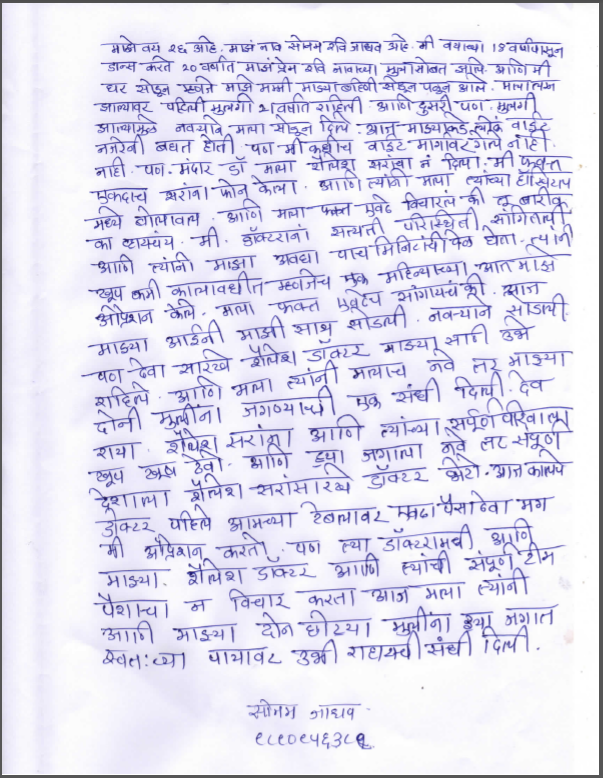 माझे वय २६ आहे. माझं नाव सोनम रवि जाधव आहे. मी वयाच्या 19 वर्षापासून
डान्स करते 20 वर्षात माझं प्रेम रवि नावाच्या मुलासोबत झाले. आणि मी
घर सोडून स्वतः माझे मम्मी माझ्या बहिणी सोडून पळून आले.
झाल्यावर पहिली मुलगी 21 वर्षात राहिली आणि दुसरी पण मुलगी
झाल्यामुळे नवऱ्याने मला सोडून दिले. आज माझ्याकडे लोक वाईट
नजरेनी बघत होती. पण मी कधीच वाईट मार्गावर गेले नाही.
नाही. पण मंदार डॉ मला शैलेश सरांचा नं दिला. मी फक्त
एकदाच सरांना फोन केला. आणि त्यांनी मला त्यांच्या हॉस्पिटल
मध्ये बोलावलं. आणि मला फक्त एवढे विचारलं की तू बारीक
का व्हायचंय. मी डॉक्टरांना सत्यती परिस्थिती सांगितली
आणि त्यांनी माझा अवघा पाच मिनिटांची वेळ घेता. त्यांनी
खूप कमी कालावधीत म्हणजेच एक महिन्याच्या आत माझे
ऑप्रेशन केले. मला फक्त एवढेच सांगायचं की. आज
माझ्या आईनी माझी साथ सोडली. नवऱ्याने सोडली.
पण देवा सारखे शैलेश डॉक्टर माझ्या साठी उभे
राहिले. आणि मला त्यांनी मलाच नवे तर माझ्या
दोनी मुलींना जगण्याची एक संधी दिली. देव
राया. शैलेश सरांना आणि त्यांच्या संपूर्ण परिवाला
खूप खुष ठेवो. आणि ह्या जगाला नवे तर संपूर्ण
देशाला शैलेश सरांसारखे डॉक्टर भेटो. आज कालचे
डॉक्टर पहिले आमच्या टेबलावर पैसा ठेवा मग
मी ऑप्रेशन करतो. पण त्या डॉक्टरामधी आणि
माझ्या. शैलेश डॉक्टर आणि त्यांची संपूर्ण टीम
पैशाचा न विचार करता आज मला त्यांनी
आणि माझ्या दोन छोट्या मुलींना ह्या जगात
स्वतःच्या पायावर उभी राहायची संधी दिली.
सोनम जाधव